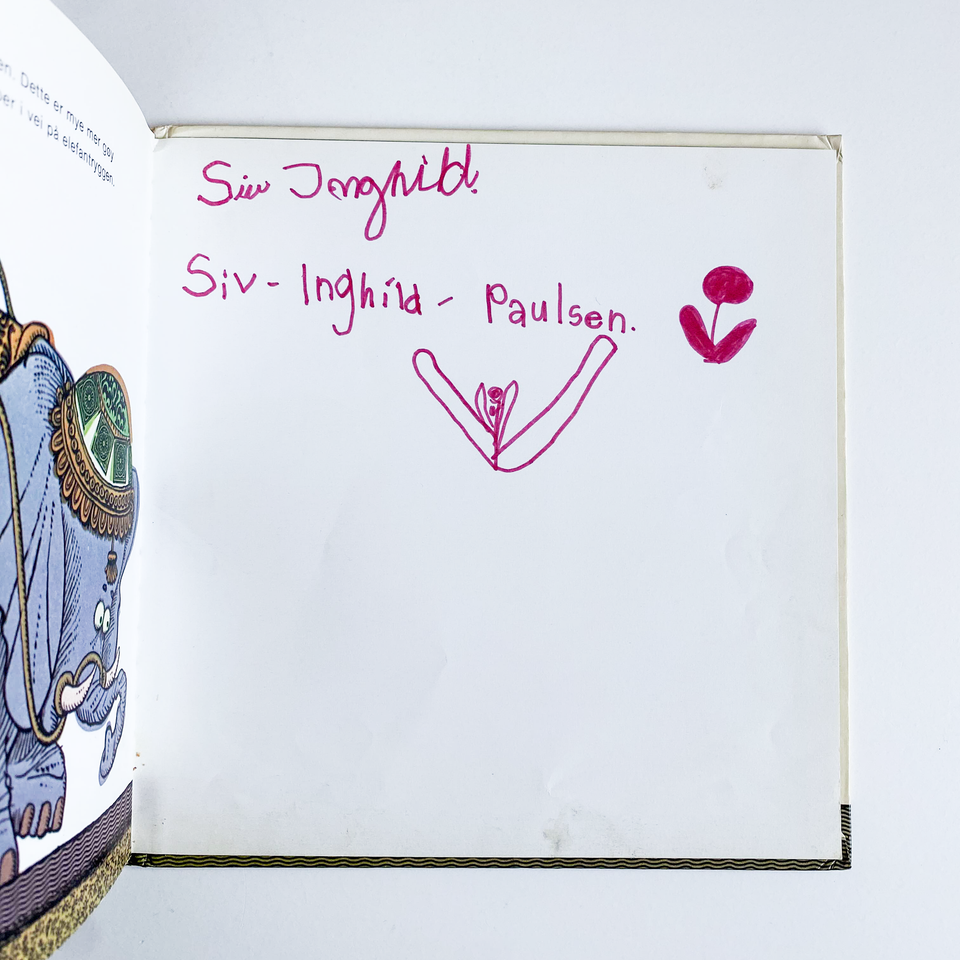 en. Dette er mye mer gøy
er i vei på elefantryggen.
Siv Inghild.
Siv - Inghild - Paulsen.